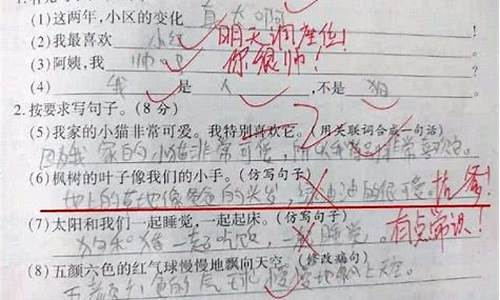 (1)这两年,小区的变化 真大啊
(2)我最喜欢 小红 明天调座位!
(3)阿姨,我 帅吧 你很帅!
(4) 我 是 人 ,不是 狗
2.按要求写句子。(8分)
(5)我家的小猫非常可爱。我特别喜欢它。(用关联词合成一句话)
因为我家的小猫非常可爱,所以我特别非常喜欢它。
(6)枫树的叶子像我们的小手。(仿写句子)
地上的草地像爸爸的头发,绿油油的很可爱。
(7)太阳和我们一起睡觉,一起起床。(仿写句子)
狗和猪一起吃饭,一起睡觉。 有点常识!
(8)五颜六色的红气球慢慢地飘向天空。(修改病句)
慢慢地飘上天空。